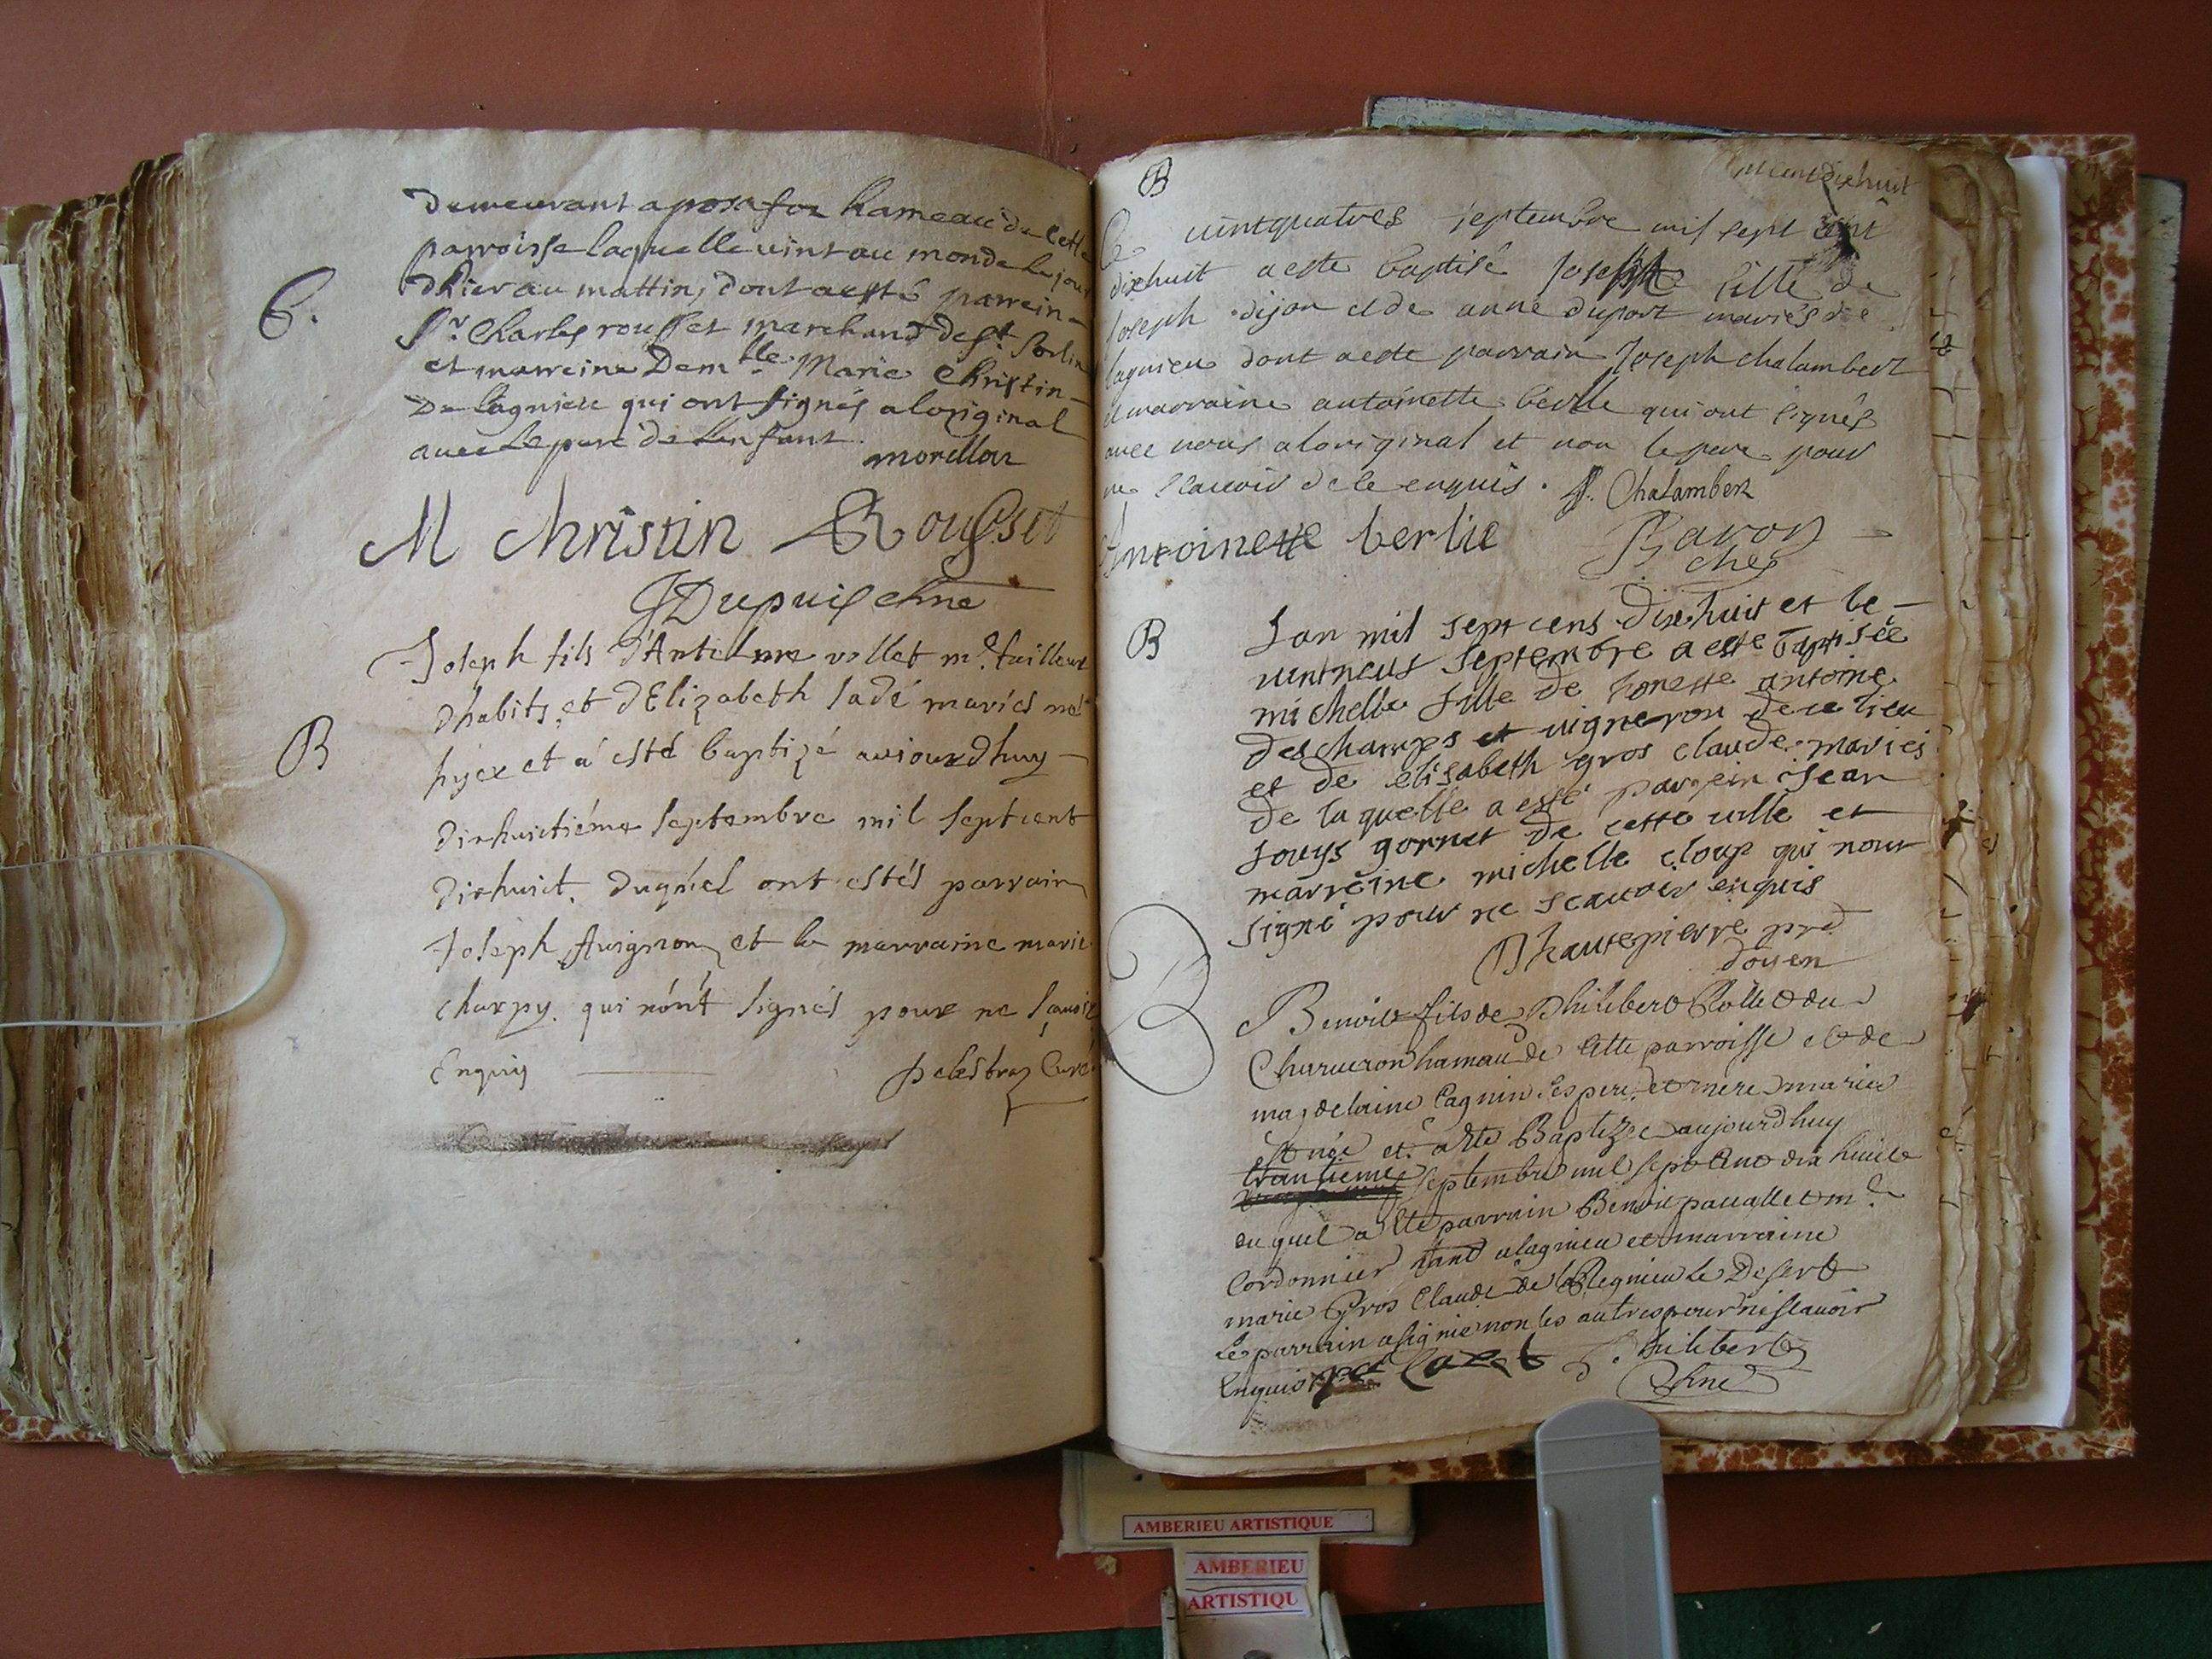 demeurant a posafol hameau de cette
parroisse laquelle vint au monde le jour
dhier au mattin, dont a esté parrein
6.
Sr. Charles rousset marchand de St. Sorlin
et marreine Demlle. Marie Christin
de lagnieu qui ont signés a loriginal
avec le pere de lenfant.
morellon
M christin Rousset
Dupuis chne
Joseph fils d'Antelme vollet me. tailleur
dhabits, et d'Elizabeth sadé mariés né
B
hyer et a esté baptizé aujourdhuy
dixhuictiéme septembre mil septcent
dixhuict, duquel ont estés parrain
Joseph Avignon et la marraine marie
charpy. qui n'ont signés pour ne sçavoir
Enquis
pelestraz Curé
B
Ce vintquatres septembre mil sept cent
dixhuit a este baptisé Josephte fille de
Joseph dijon et de anne duport mariés de
lagnieu dont a este parrain Joseph chalambert
et marraine antoinette berlie qui ont signés
avec nous a loriginal et non le pere pour
ne scavoir de ce enquis. J. Chalambert
Antoinette berlie
Baron
che
B
Lan mil sept cens dixhuit et le
vintneuf septembre a esté baptisée
michelle fille de honeste antoine
deschamps et vigneron de ce lieu
et de elisabeth gros claude mariés
de laquelle a esté parrein jean
Louys gornet de cette ville et
marreine michelle cloup qui nont
signé pour ne scavoir enquis
Dhautepierre prd
doyen
B
Benoit fils de Philibert Rollet du
Charveron hameau de cette parroisse et de
magdelaine Cagnin ses pere et mere mariés
est née et a esté Baptizée aujourdhuy
trantieme septembre mil sept cent dix huict
du quel a esté parrain Benoit pacallet me.
Cordonnier a lagnieu et marraine
marie Gros Claude de Regnieu le Desert
Le parrain a signé non les autres pour ne scavoir
Enquis
Philibert
Chne
AMBERIEU ARTISTIQUE
AMBERIEU
ARTISTIQU